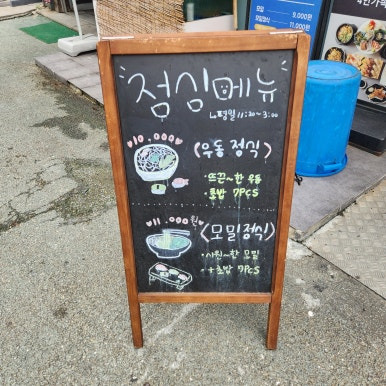 점심메뉴
↳평일 11:30~3:00
10.000
<우동정식>
• 뜨끈~한 우동
• 초밥 7PCS
11.000원
<모밀정식>
• 시원~한 모밀
• +초밥 7PCS
9,000원
11,000원